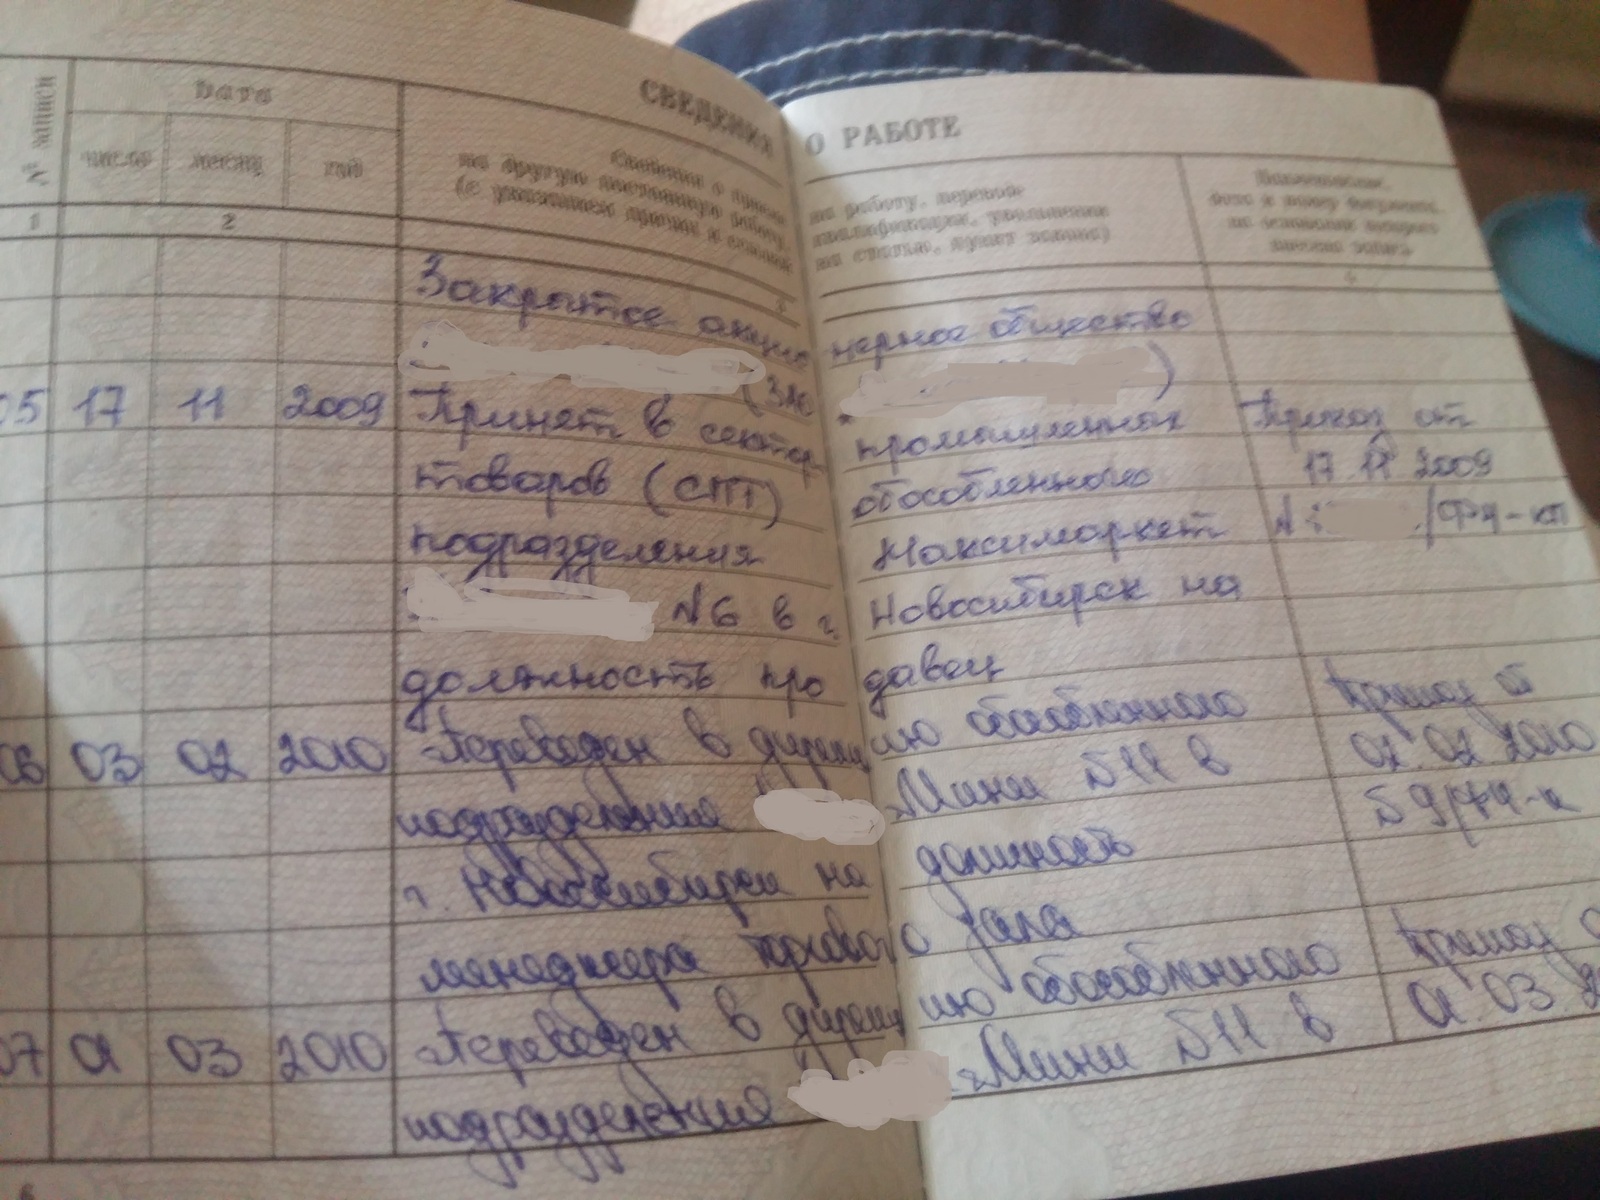 СВЕДЕНИЯ О РАБОТЕ
№ записи
Дата
число месяц год
Сведения о приеме на работу, перево-
на другую постоянную работу, квалификации, увольнении
(с указанием причин и ссылкой на статью, пункт закона)
Наименование,
дата и номер документа,
на основании которого
внесена запись
1 2 3 4
Закрытое акцио нерное общество
(ЗАО )
05 17 11 2009 Принят в сектор промышленных Приказ от
товаров (СПТ) обособленного 17.11 2009
подразделения Максимаркет N /ФЧ-кп
N6 в г. Новосибирск на
должность про давец
06 03 02 2010 Переведен в дирекц ию обособленного Приказ от
подразделения Мини №11 в 02.02.2010
г. Новосибирск на должность №9/ФЧ-к
менеджера торгового зала
07 01 03 2010 Переведен в дирекц ию обособленного Приказ о
подразделения Мини №11 в 01.03.20